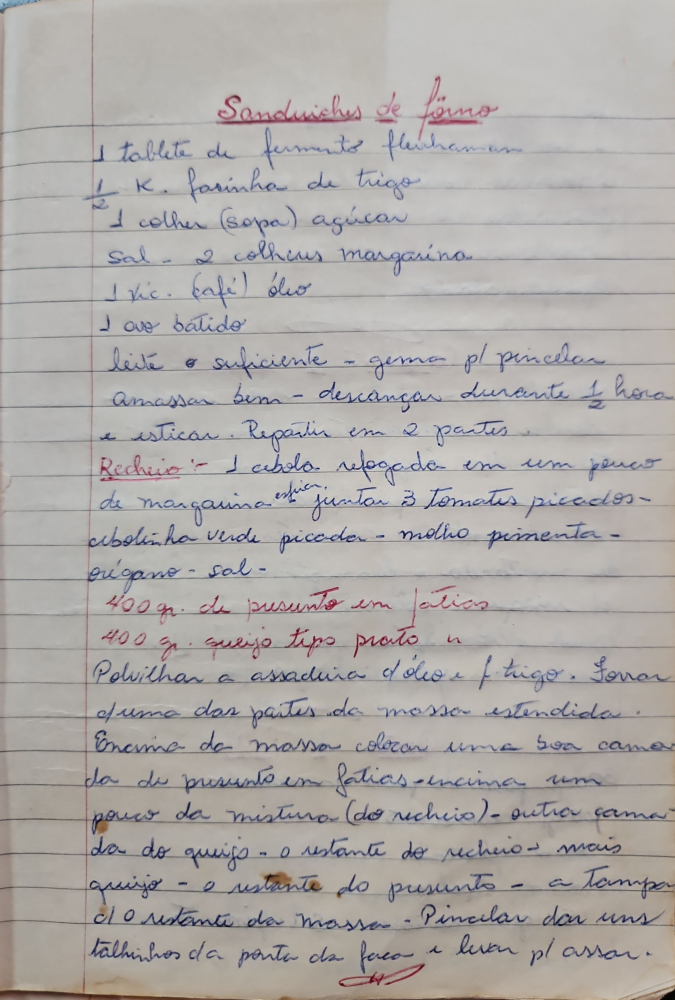 Sanduiches de fôrno
1 tablete de fermento fleishaman
1/2 K. farinha de trigo
1 colher (sopa) açúcar
Sal - 2 colheres margarina
1 xic. (café) óleo
1 ovo batido
leite o suficiente - gema p/ pincelar
amassar bem - descançar durante 1/2 hora
e esticar. Repartir em 2 partes.
Recheio:- 1 cebola refogada em um pouco
de margarina esfriar. juntar 3 tomates picados-
cebolinha verde picada - molho pimenta -
orégano - sal -
400 gr. de presunto em fatias
400 gr. queijo tipo prato "
Polvilhar a assadeira c/óleo e f. trigo. Forrar
c/uma das partes da massa estendida.
Encima da massa colocar uma boa cama-
da de presunto em fatias - encima um
pouco da mistura (do recheio) - outra cama-
da do queijo - o restante do recheio - mais
queijo - o restante do presunto - a tampa
c/ o restante da massa - Pincelar dar uns
talhinhos da ponta da faca e levar p/ assar.